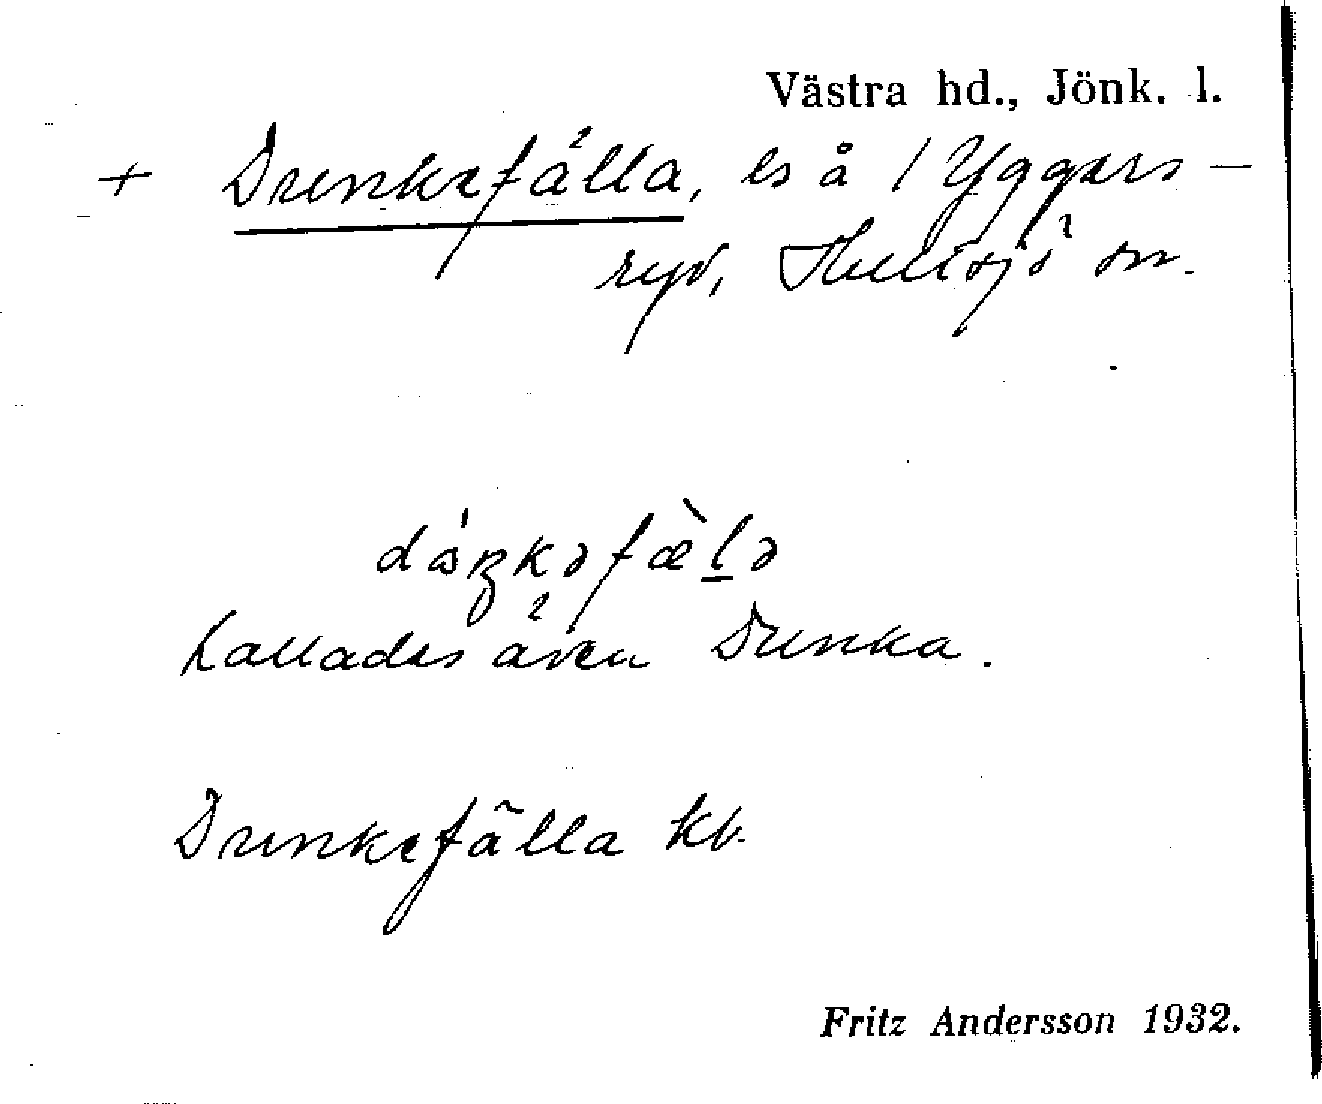 Västra hd., Jönk. l.
+ Dunkefälla, ls å 1 Yggers-
ryd, Hultsjö sn.
kallades även Dunka.
Dunkefälla kb.
Fritz Andersson 1932.